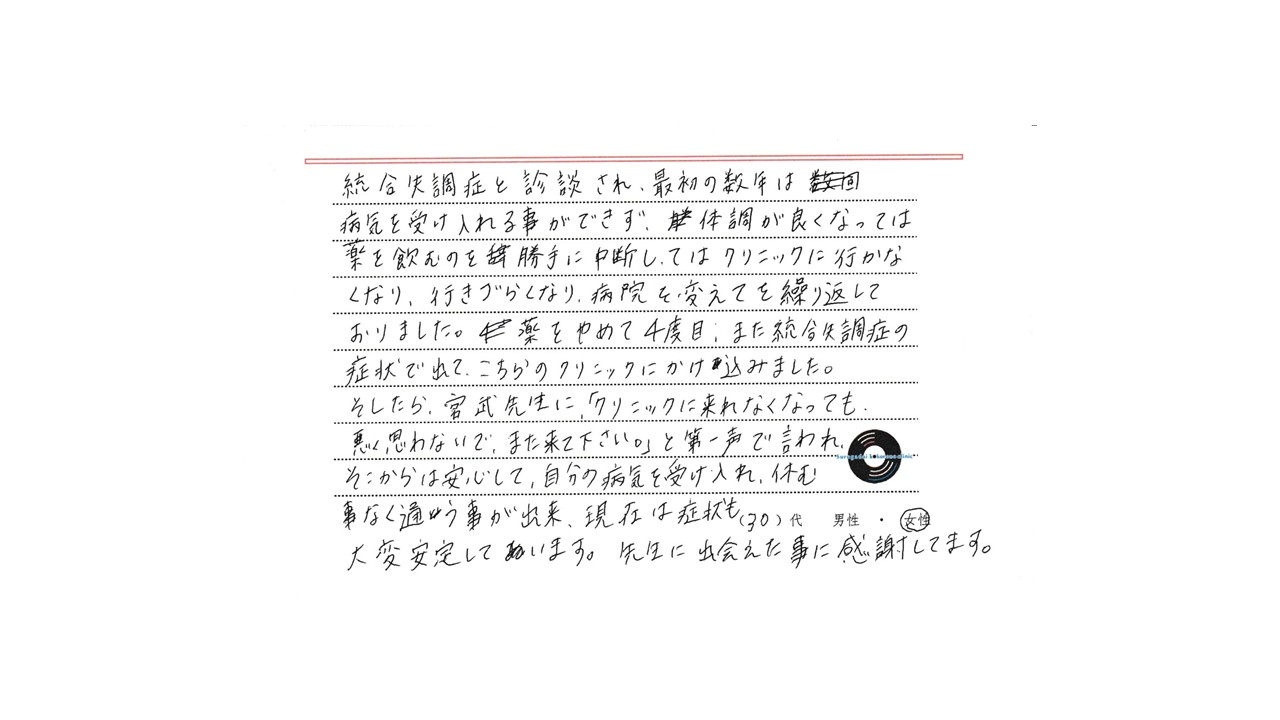 統合失調症と診談され、最初の数年は
病気を受け入れる事ができず、体調が良くなっては
薬を飲むのを勝手に中断しては クリニックに行かな
くなり、行きづらくなり、病院を変えてを繰り返して
おりました。薬をやめて4度目、また統合失調症の
症状で出て、こちらのクリニックにかけ込みました。
そしたら、宮武先生に、「クリニックに来れなくなっても、
悪く思わないで、また来て下さい。」と第一声で言われ、
そこからは安心して、自分の病気を受け入れ、休む
事なく通う事が出来、現在は症状も
(30)代 男性 ・ 女性
大変安定しています。先生に出会えた事に感謝してます。